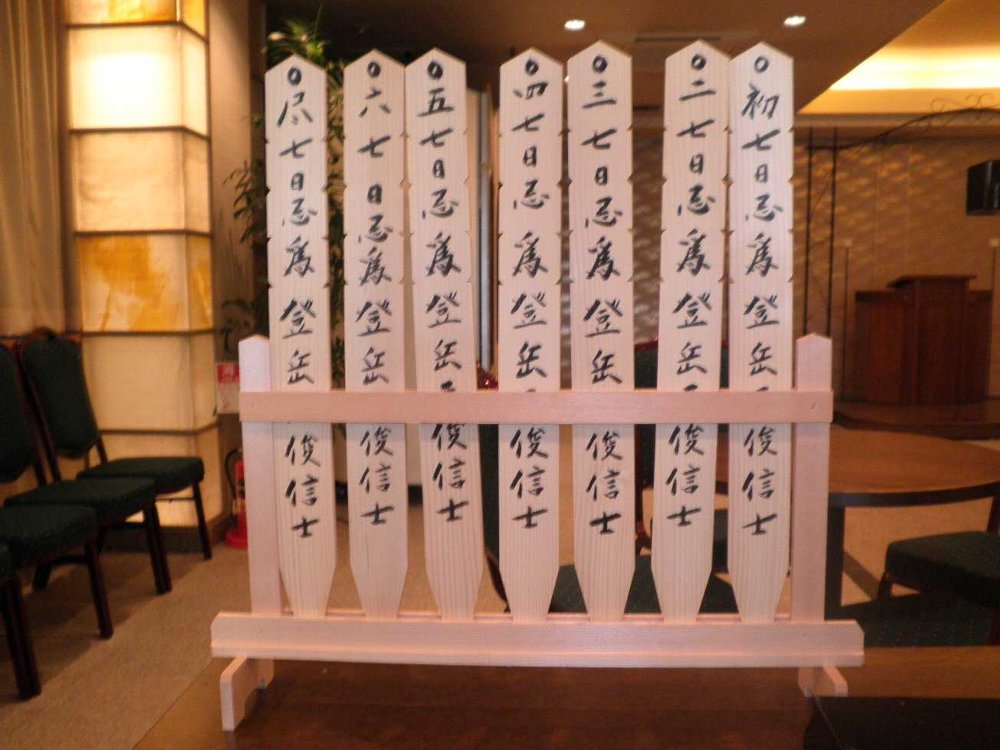 〇初七日忌爲登岳俊信士
〇二七日忌爲登岳俊信士
〇三七日忌爲登岳俊信士
〇四七日忌爲登岳俊信士
〇五七日忌爲登岳俊信士
〇六七日忌爲登岳俊信士
〇尽七日忌爲登岳俊信士